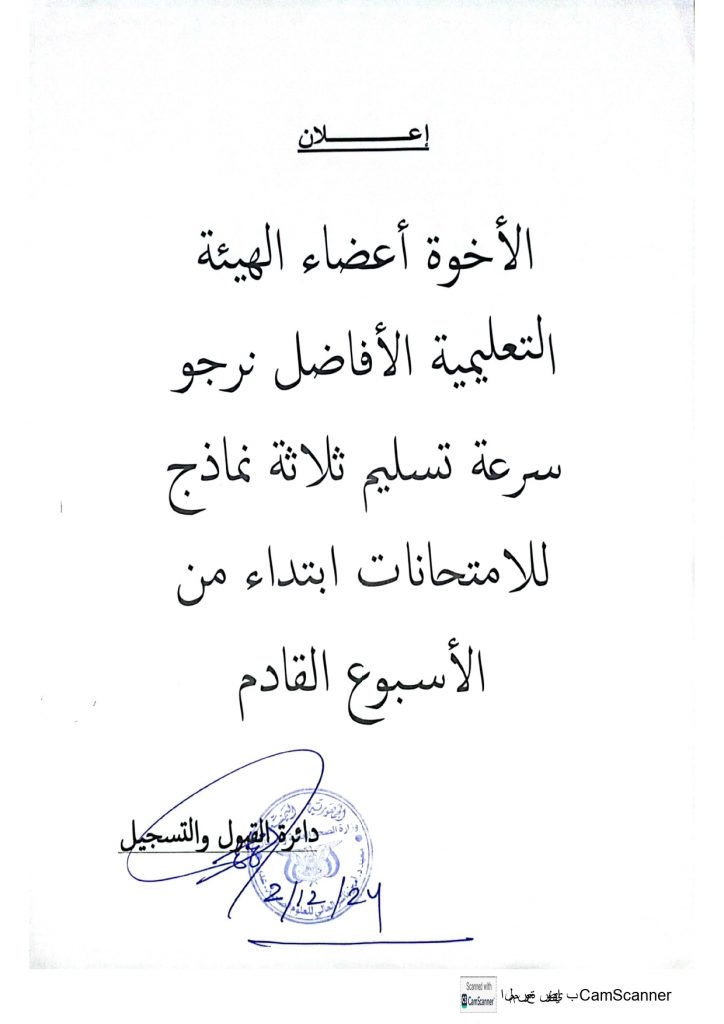 إعـــــــلان
الأخوة أعضاء الهيئة
التعليمية الأفاضل نرجو
سرعة تسليم ثلاثة نماذج
للامتحانات ابتداء من
الأسبوع القادم
دائرة القبول والتسجيل
2/12/24
Scanned with
CamScanner
الممسوحة ضوئيا بـ CamScanner